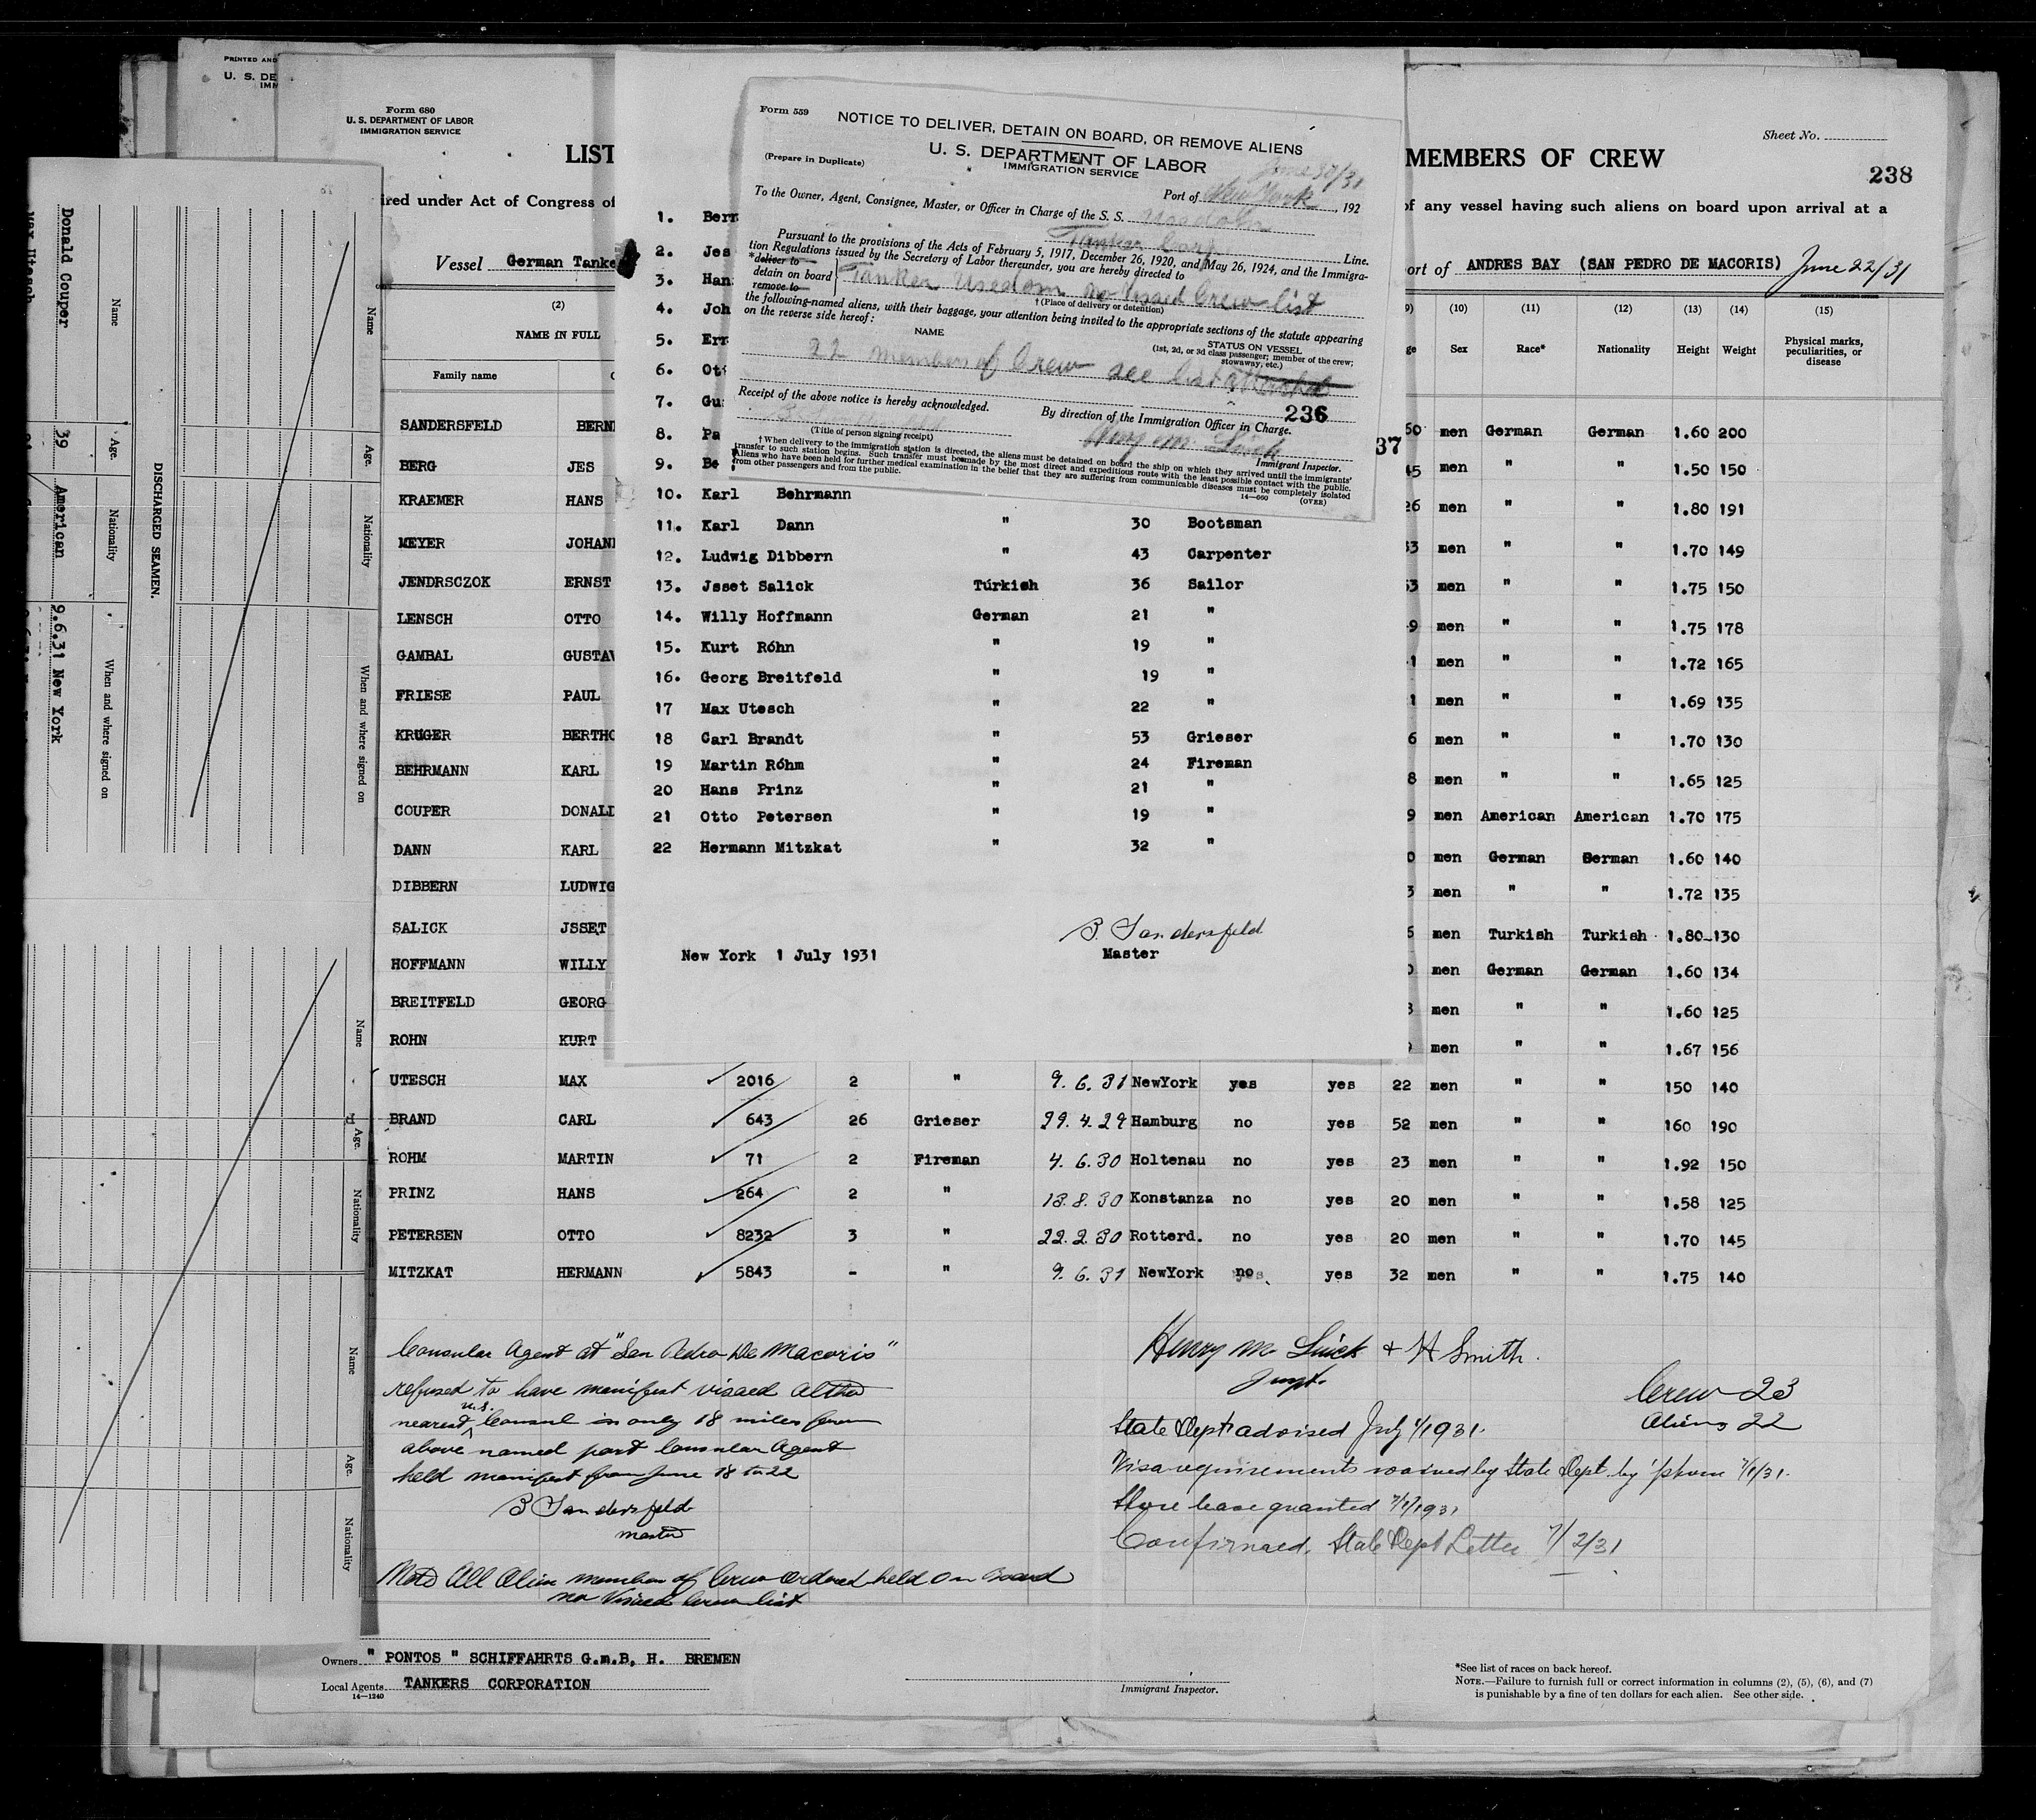 PRINTED AND
U. S. DE
IMM
Form 680
U. S. DEPARTMENT OF LABOR
IMMIGRATION SERVICE
LIST
MEMBERS OF CREW
Sheet No.
238
ired under Act of Congress of
of any vessel having such aliens on board upon arrival at a
Vessel German Tanke
ort of ANDRES BAY (SAN PEDRO DE MACORIS) June 22/31
(2)
NAME IN FULL
Family name
(10) (11) (12) (13) (14) (15)
ge Sex Race* Nationality Height Weight Physical marks, peculiarities, or disease
SANDERSFELD BERN
60 men German German 1.60 200
BERG JES
45 men " " 1.50 150
KRAEMER HANS
26 men " " 1.80 191
MEYER JOHAN
33 men " " 1.70 149
JENDRSCZOK ERNST
53 men " " 1.75 150
LENSCH OTTO
9 men " " 1.75 178
GAMBAL GUSTAV
1 men " " 1.72 165
FRIESE PAUL
1 men " " 1.69 135
KRUGER BERTHO
6 men " " 1.70 130
BEHRMANN KARL
8 men " " 1.65 125
COUPER DONALD
9 men American American 1.70 175
DANN KARL
0 men German German 1.60 140
DIBBERN LUDWIG
3 men " " 1.72 135
SALICK JSSET
6 men Turkish Turkish 1.80 130
HOFFMANN WILLY
0 men German German 1.60 134
BREITFELD GEORG
8 men " " 1.60 125
ROHN KURT
9 men " " 1.67 156
UTESCH MAX 2016 2 " 9.6.31 NewYork yes yes 22 men " " 150 140
BRAND CARL 643 26 Grieser 29.4.29 Hamburg no yes 52 men " " 160 190
ROHM MARTIN 71 2 Fireman 4.6.30 Holtenau no yes 23 men " " 1.92 150
PRINZ HANS 264 2 " 13.8.30 Konstanza no yes 20 men " " 1.58 125
PETERSEN OTTO 8232 3 " 22.2.30 Rotterd. no yes 20 men " " 1.70 145
MITZKAT HERMANN 5843 - " 9.6.31 NewYork no yes 32 men " " 1.75 140
Consular Agent at "San Pedro De Macoris"
refused to have manifest visaed altho
nearest U.S. Consul is only 18 miles from
above named port Consular Agent
held manifest from June 18 to 22
B Sandersfeld
master
Note All Alien member of Crew ordered held on Board
no Visaed Crew list
Henry M. Luick + H Smith.
Inspt.
Crew 23
Aliens 22
State Dept advised July 1/1931.
Visa requirements waived by State Dept. by 'phone 7/1/31.
Shore leave granted 7/1/1931
Confirmed, State Dept Letter 7/2/31
Owners " PONTOS " SCHIFFAHRTS G.m.B, H. BREMEN
Local Agents TANKERS CORPORATION
14—1240
Immigrant Inspector.
*See list of races on back hereof.
NOTE.—Failure to furnish full or correct information in columns (2), (5), (6), and (7)
is punishable by a fine of ten dollars for each alien. See other side.
1. Ber
2. Jes
3. Han
4. Joh
5. Err
6. Ot
7. Gu
8. Pa
9. Be
37
10. Karl Behrmann
11. Karl Dann " 30 Bootsman
12. Ludwig Dibbern " 43 Carpenter
13. Jsset Salick Turkish 36 Sailor
14. Willy Hoffmann German 21 "
15. Kurt Röhn " 19 "
16. Georg Breitfeld " 19 "
17 Max Utesch " 22 "
18 Carl Brandt " 53 Grieser
19 Martin Röhm " 24 Fireman
20 Hans Prinz " 21 "
21 Otto Petersen " 19 "
22 Hermann Mitzkat " 32 "
B. Sandersfeld
New York 1 July 1931 Master
Form 559
NOTICE TO DELIVER, DETAIN ON BOARD, OR REMOVE ALIENS
(Prepare in Duplicate)
U. S. DEPARTMENT OF LABOR
IMMIGRATION SERVICE
June 30/31
Port of New York, 192
To the Owner, Agent, Consignee, Master, or Officer in Charge of the S. S. Usedom
Tanker Corp Line.
Pursuant to the provisions of the Acts of February 5, 1917, December 26, 1920, and May 26, 1924, and the Immigra-
tion Regulations issued by the Secretary of Labor thereunder, you are hereby directed to
*deliver to
detain on board Tanker Usedom no Visaed Crew list
remove to
†(Place of delivery or detention)
the following-named aliens, with their baggage, your attention being invited to the appropriate sections of the statute appearing
on the reverse side hereof:
NAME
STATUS ON VESSEL
(1st, 2d, or 3d class passenger; member of the crew;
stowaway, etc.)
22 members of Crew see list attached
Receipt of the above notice is hereby acknowledged.
236
By direction of the Immigration Officer in Charge.
(Title of person signing receipt)
Henry M. Luick
Immigrant Inspector.
†When delivery to the immigration station is directed, the aliens must be detained on board the ship on which they arrived until the immigrants'
transfer to such station begins. Such transfer must be made by the most direct and expeditious route with the least possible contact with the public.
Aliens who have been held for further medical examination in the belief that they are suffering from communicable diseases must be completely isolated
from other passengers and from the public.
14—660 (OVER)
DISCHARGED SEAMEN.
Name Age. Nationality When and where signed on
Donald Couper 39 American 9.6.31 New York
Max Utesch
Name Age. Nationality When and where signed on
Name Age. Nationality
Name Age. Nationality